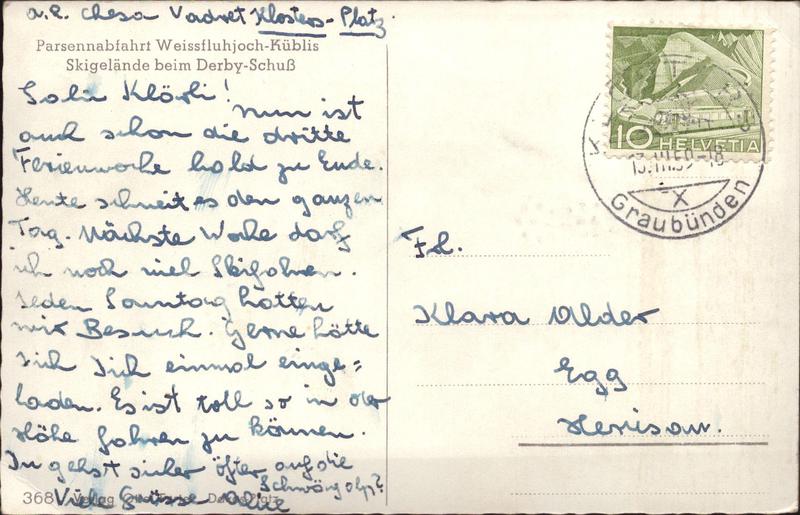 a.R. Chesa Vadret Klosters-Platz
Parsennabfahrt Weissfluhjoch-Küblis
Skigelände beim Derby-Schuß
Salü Klärli!
Nun ist
auch schon die dritte
Ferienwoche bald zu Ende.
Heute schneit es den ganzen
Tag. Nächste Woche darf
ich noch viel Skifahren.
Jeden Sonntag hatten
wir Besuch. Gerne hätte
ich Dich einmal einge=
laden. Es ist toll so in der
Höhe fahren zu können.
Du gehst sicher öfter auf die
Schwägalp?
Viele Grüsse
368 Verlag Platz
10 HELVETIA
13.III.59-18
X
Graubünden
Frl.
Klara Alder
Egg
Herisau.